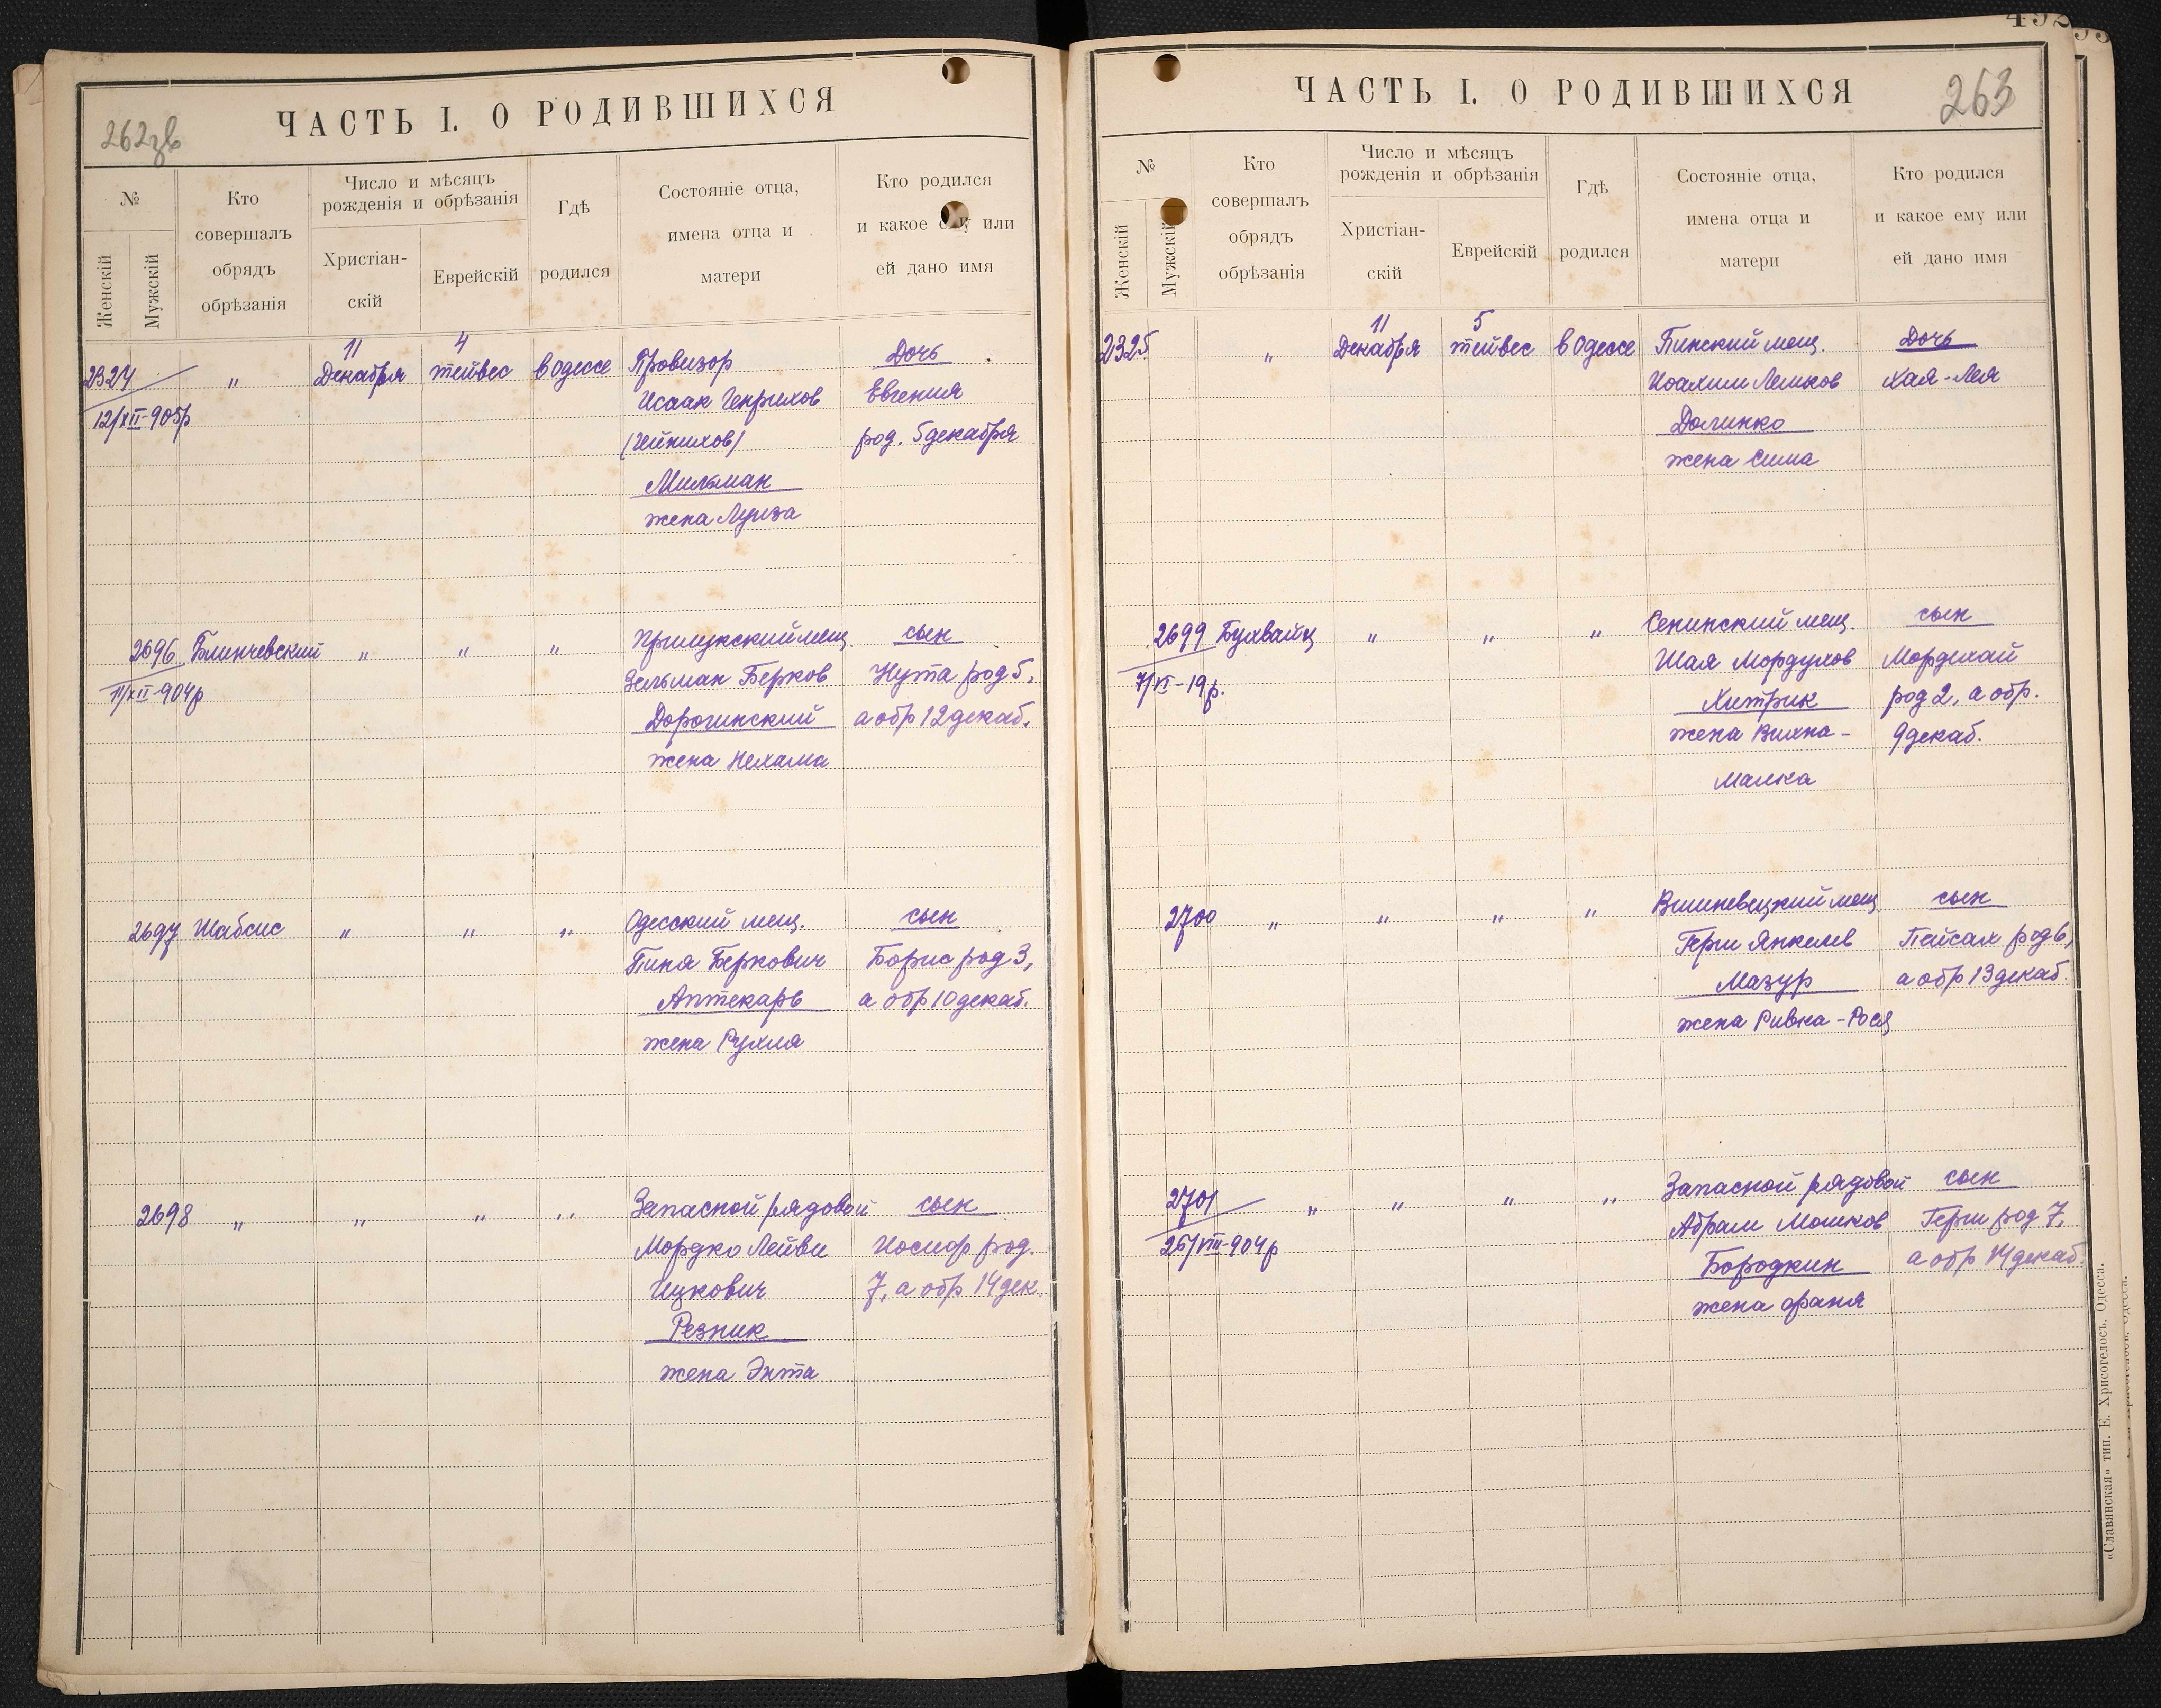 262зв
ЧАСТЬ I. О РОДИВШИХСЯ
№
Женскій
Мужскій
Кто
совершалъ
обрядъ
обрѣзанія
Число и мѣсяцъ
рожденія и обрѣзанія
Христіан-
скій
Еврейскій
Гдѣ
родился
Состояніе отца,
имена отца и
матери
Кто родился
и какое ему или
ей дано имя
2324 " 11 Декабря 4 тейвес в Одессе Провизор Дочь
Исаак Генрихов Евгения
12/XII-905р (Гейнихов) род. 5 декабря
Мильман
жена Луиза
2696 Блинчевский " " " Прилукский мещ. сын
11/XII-904р Зельман Берков Нута род 5,
Дорогинский а обр 12 декаб.
жена Нехама
2697 Шабсис " " " Одесский мещ. сын
Пиня Беркович Борис род 3,
Аптекарь а обр 10 декаб.
жена Рухля
2698 " " " " Запасной рядовой сын
Мордко Лейви Иосиф род.
Ицкович 7, а обр 14 дек.
Резник
жена Энта
492
263
ЧАСТЬ I. О РОДИВШИХСЯ
№
Женскій
Мужскій
Кто
совершалъ
обрядъ
обрѣзанія
Число и мѣсяцъ
рожденія и обрѣзанія
Христіан-
скій
Еврейскій
Гдѣ
родился
Состояніе отца,
имена отца и
матери
Кто родился
и какое ему или
ей дано имя
2325 " 11 Декабря 5 тейвес в Одессе Пинский мещ. Дочь
Иоахим Лемков Хая-Лея
Долинко
жена Сима
2699 Бухвайц " " " Сенинский мещ. сын
7/VI-19р. Шая Мордухов Мордехай
Хитрик род 2, а обр.
жена Вихна- 9 декаб.
Малка
2700 " " " " Вишневецкий мещ. сын
Герш Янкелев Пейсах род 6,
Мазур а обр 13 декаб.
жена Ривка-Рося
2701 " " " " Запасной рядовой сын
26/VIII-904р Абрам Мошков Герш род 7,
Бородкин а обр 14 декаб.
жена Франя
«Славянская» тип. Е. Хрисогелосъ. Одесса.